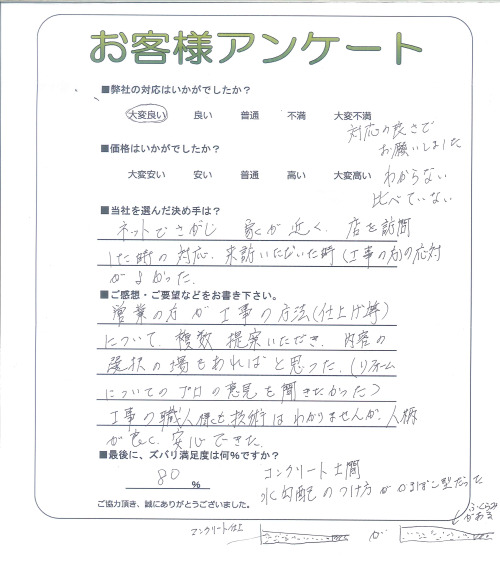 お客様アンケート
■弊社の対応はいかがでしたか？
大変良い 良い 普通 不満 大変不満
対応の良さで
お願いしました
■価格はいかがでしたか？
大変安い 安い 普通 高い 大変高い
わからない
比べていない
■当社を選んだ決め手は？
ネットでさがし 家が近く、店を訪問
した時の対応、来訪いただいた時(工事の方)の応対
がよかった。
■ご感想・ご要望などをお書き下さい。
営業の方が工事の方法(仕上げ等)
について、複数提案いただき、内容の
選択の場もあればと思った。(リフォーム
についてのプロの意見を聞きたかった)
工事の職人様も技術はわかりませんが、人柄
が良く、安心できた。
■最後に、ズバリ満足度は何%ですか？
80 %
コンクリート土間
水勾配のつけ方がかまぼこ型だった
ご協力頂き、誠にありがとうございました。
ふくらみ
がある
コンクリート仕上
が